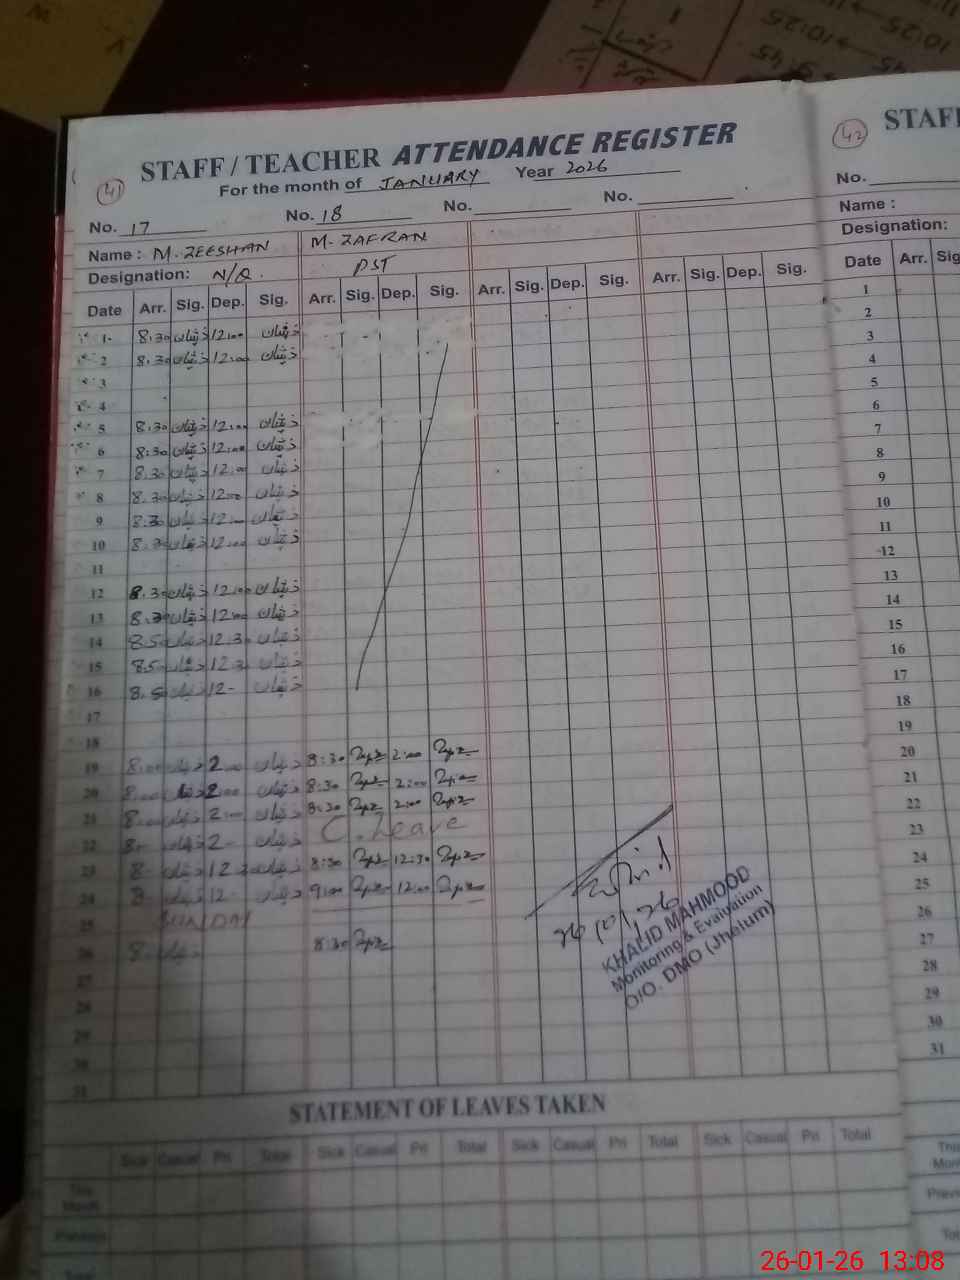 41
STAFF / TEACHER ATTENDANCE REGISTER
For the month of JANUARY Year 2026
No. 17 No. 18 No. No.
Name : M. ZEESHAN M. ZAFRAN
Designation: N/Q. PST
Date Arr. Sig. Dep. Sig. Arr. Sig. Dep. Sig. Arr. Sig. Dep. Sig. Arr. Sig. Dep. Sig.
1 8:30 ذیشان 12:00 ذیشان
2 8:30 ذیشان 12:00 ذیشان
3
4
5 8:30 ذیشان 12:00 ذیشان
6 8:30 ذیشان 12:00 ذیشان
7 8:30 ذیشان 12:00 ذیشان
8 8:30 ذیشان 12:00 ذیشان
9 8:30 ذیشان 12:00 ذیشان
10 8:30 ذیشان 12:00 ذیشان
11
12 8:30 ذیشان 12:00 ذیشان
13 8:30 ذیشان 12:00 ذیشان
14 8:50 ذیشان 12:30 ذیشان
15 8:50 ذیشان 12:30 ذیشان
16 8:50 ذیشان 12- ذیشان
17
18
19 8:00 ذیشان 2:00 ذیشان 8:30 2:00
20 8:00 ذیشان 2:00 ذیشان 8:30 2:00
21 8:00 ذیشان 2:00 ذیشان 8:30 2:00
22 8- ذیشان 2- ذیشان C. Leave
23 8- ذیشان 12:30 ذیشان 8:30 12:30
24 8- ذیشان 12- ذیشان 9:00 12:00
25 SUNDAY
26 8- ذیشان 8:30
27
28
29
30
31
26/01/26
KHALID MAHMOOD
Monitoring & Evaluation
O/O. DMO (Jhelum)
STATEMENT OF LEAVES TAKEN
Sick Casual Pri Total Sick Casual Pri Total Sick Casual Pri Total
This Month
Previous
Total
42
STAFF
No.
Name :
Designation:
Date Arr. Sig
1
2
3
4
5
6
7
8
9
10
11
12
13
14
15
16
17
18
19
20
21
22
23
24
25
26
27
28
29
30
31
26-01-26 13:08